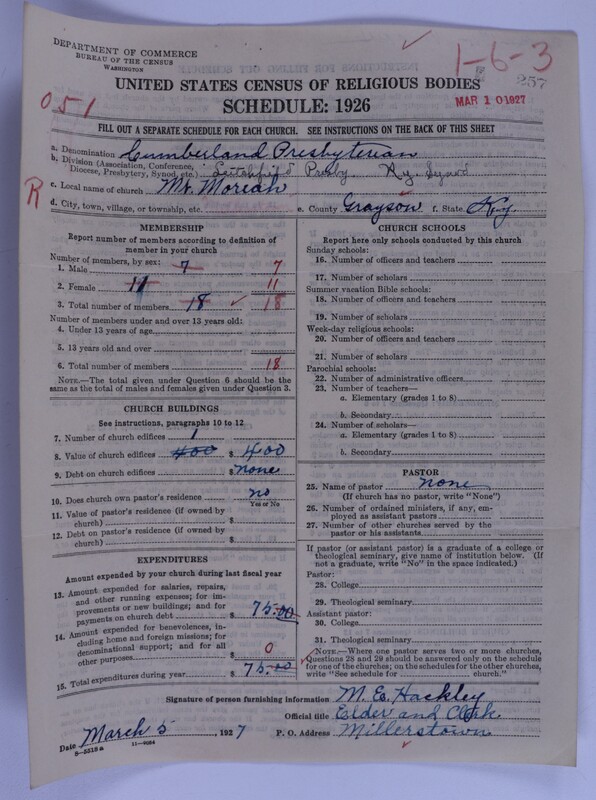 DEPARTMENT OF COMMERCE
BUREAU OF THE CENSUS
WASHINGTON
1-6-3
257
UNITED STATES CENSUS OF RELIGIOUS BODIES
SCHEDULE: 1926
MAR 10 1927
051
FILL OUT A SEPARATE SCHEDULE FOR EACH CHURCH. SEE INSTRUCTIONS ON THE BACK OF THIS SHEET
a. Denomination Cumberland Presbyterian
b. Division (Association, Conference, Diocese, Presbytery, Synod, etc.) Leitchfield Presby. Ky. Synod
R
c. Local name of church Mt. Moriah
d. City, town, village, or township, etc.
e. County Grayson f. State Ky
MEMBERSHIP
Report number of members according to definition of
member in your church
Number of members, by sex:
1. Male 7 7
2. Female 11 11
3. Total number of members 18 18
Number of members under and over 13 years old:
4. Under 13 years of age
5. 13 years old and over
6. Total number of members 18
NOTE.—The total given under Question 6 should be
same as the total of males and females given under Question 3.
CHURCH BUILDINGS
See instructions, paragraphs 10 to 12
7. Number of church edifices 1
8. Value of church edifices 400 $ 400
9. Debt on church edifices $ none
10. Does church own pastor's residence no
Yes or No
11. Value of pastor's residence (if owned by
church) $
12. Debt on pastor's residence (if owned by
church) $
EXPENDITURES
Amount expended by your church during last fiscal year
13. Amount expended for salaries, repairs,
and other running expenses; for im-
provements or new buildings; and for
payments on church debt $ 75.00
14. Amount expended for benevolences, in-
cluding home and foreign missions; for
denominational support; and for all
other purposes $ 0
15. Total expenditures during year $ 75.00
CHURCH SCHOOLS
Report here only schools conducted by this church
Sunday schools:
16. Number of officers and teachers
17. Number of scholars
Summer vacation Bible schools:
18. Number of officers and teachers
19. Number of scholars
Week-day religious schools:
20. Number of officers and teachers
21. Number of scholars
Parochial schools:
22. Number of administrative officers
23. Number of teachers—
a. Elementary (grades 1 to 8)
b. Secondary
24. Number of scholars—
a. Elementary (grades 1 to 8)
b. Secondary
PASTOR
25. Name of pastor none
(If church has no pastor, write "None")
26. Number of ordained ministers, if any, em-
ployed as assistant pastors
27. Number of other churches served by the
pastor or his assistants
If pastor (or assistant pastor) is a graduate of a college or
theological seminary, give name of institution below. (If
not a graduate, write "No" in the space indicated.)
Pastor:
28. College
29. Theological seminary
Assistant pastor:
30. College
31. Theological seminary
NOTE.—Where one pastor serves two or more churches,
Questions 28 and 29 should be answered only on the schedule
for one of the churches; on the schedules for the other churches,
write "See schedule for church."
Signature of person furnishing information M. E. Hackley
Official title Elder and Clerk
Date March 5, 1927 P. O. Address Millerstown
8-5519a 11-9084